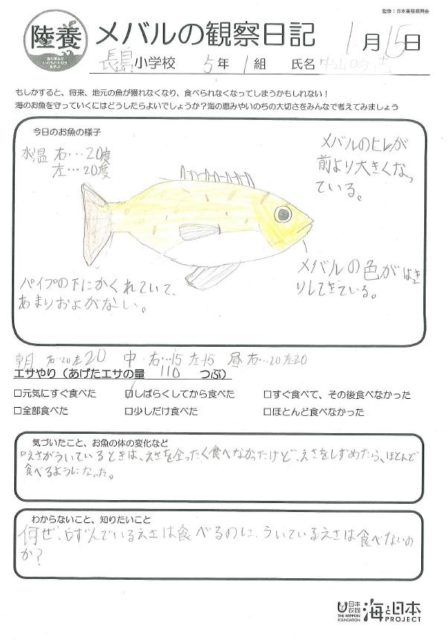 監修：日本養殖振興会
陸養 メバルの観察日記 1月15日
長島小学校 5年 1組 氏名
もしかすると、将来、地元の魚が獲れなくなり、食べられなくなってしまうかもしれない！
海のお魚を守っていくにはどうしたらよいでしょうか？海の恵みやいのちの大切さをみんなで考えてみましょう
今日のお魚の様子
水温 右…20度
左…20度
メバルのヒレが
前より大きくなっ
ている。
メバルの色がはっき
りしてきている。
パイプの下にかくれていて、
あまりおよがない。
朝 右…20左20 中 右…15 左…15 昼 右…20左20
エサやり（あげたエサの量 110 つぶ）
□元気にすぐ食べた □しばらくしてから食べた □すぐ食べて、その後食べなかった
□全部食べた □少しだけ食べた □ほとんど食べなかった
気づいたこと、お魚の体の変化など
えさがういているときは、えさを全ったく食べなかったけど、えさをしずめたら、ほとんど
食べるようになった。
わからないこと、知りたいこと
何ぜ、しずんでいるえさは食べるのに、ういているえさは食べないの
か？
日本財団 THE NIPPON FOUNDATION 海と日本 PROJECT